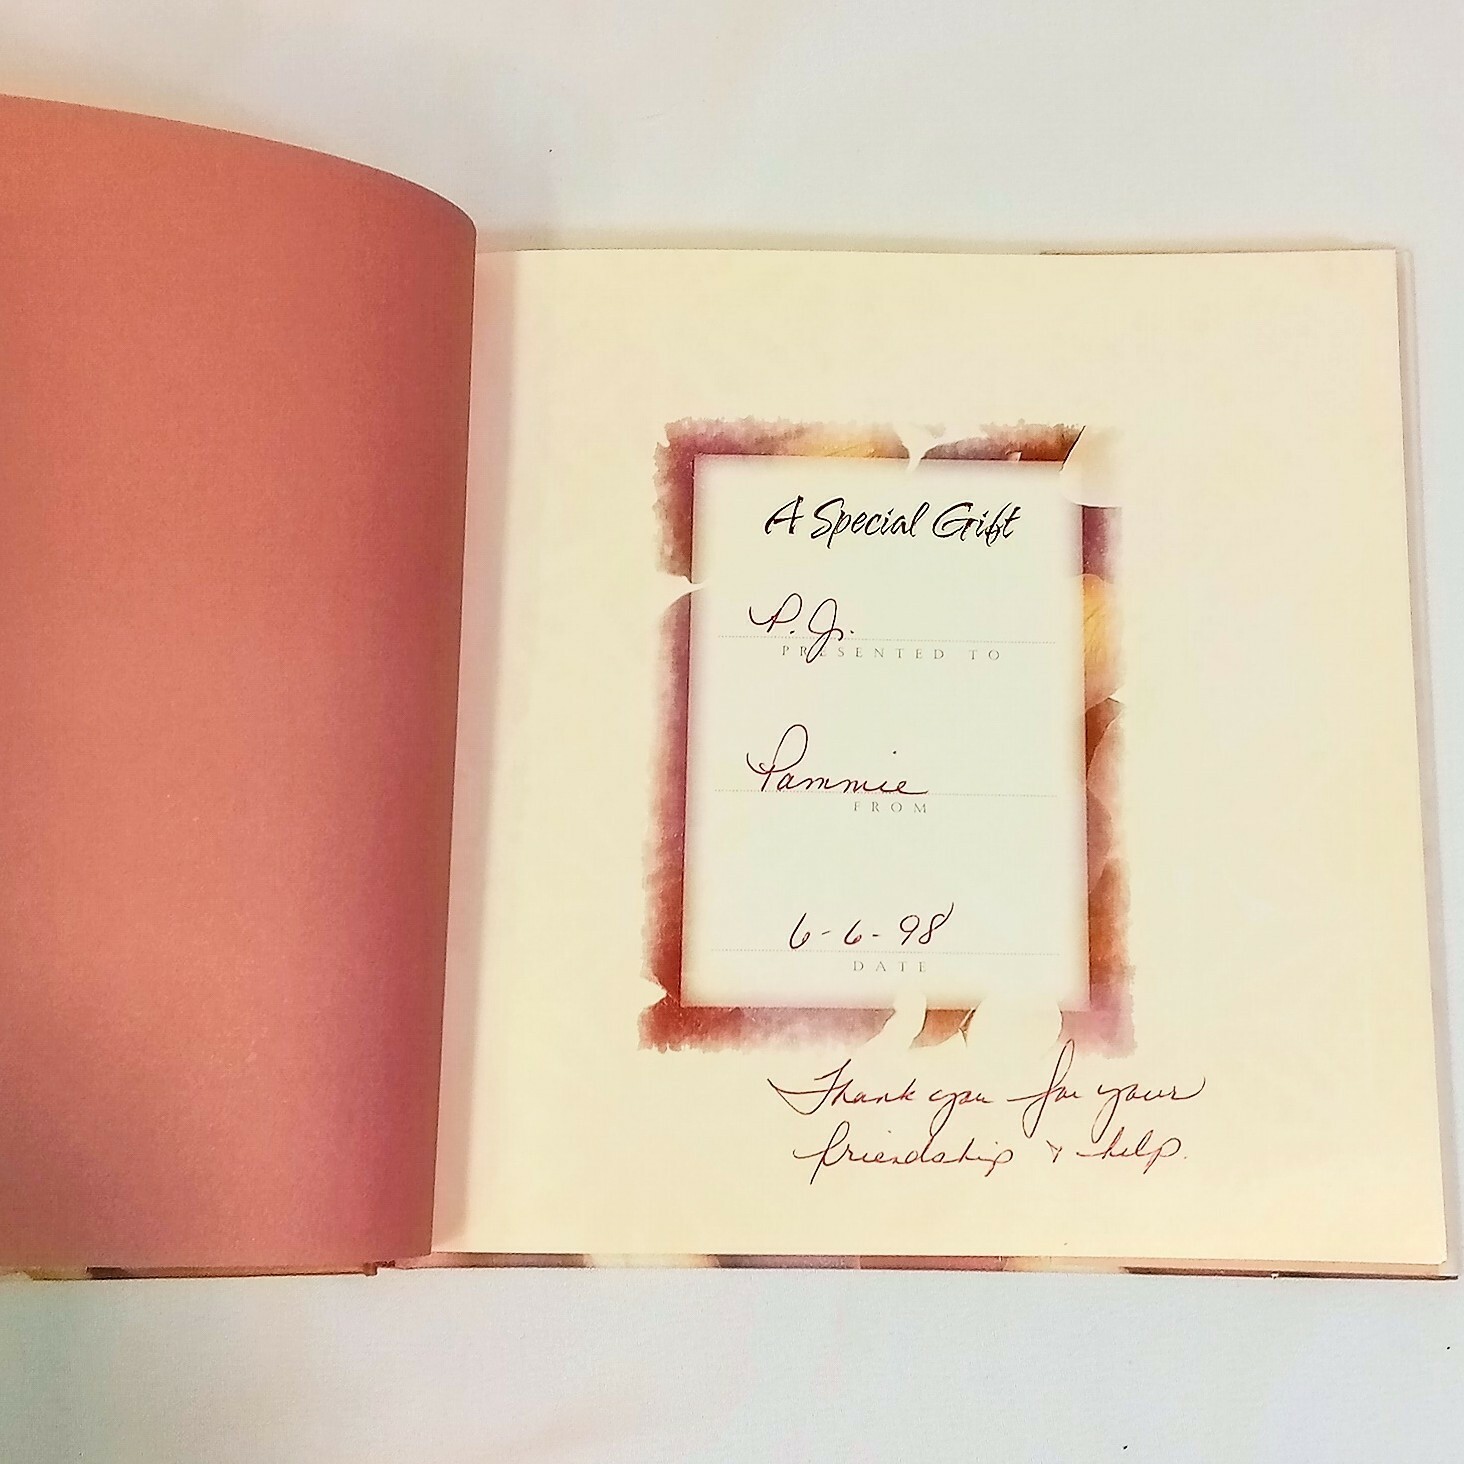 A Special Gift
P. J.
PRESENTED TO
Pammie
FROM
6-6-98
DATE
Thank you for your
friendship & help.